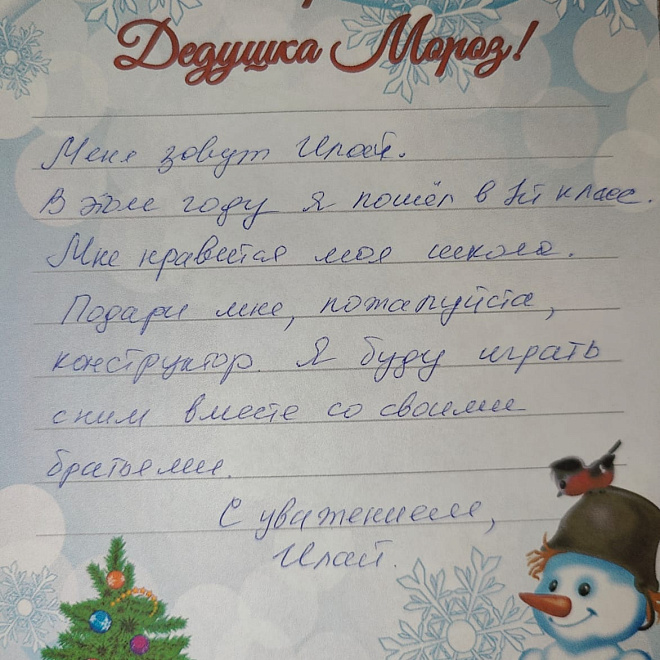 Дедушка Мороз!
Меня зовут Илай.
В этом году я пошёл в 1й класс.
Мне нравится моя школа.
Подари мне, пожалуйста,
конструктор. Я буду играть
с ним вместе со своими
братьями.
С уважением,
Илай.